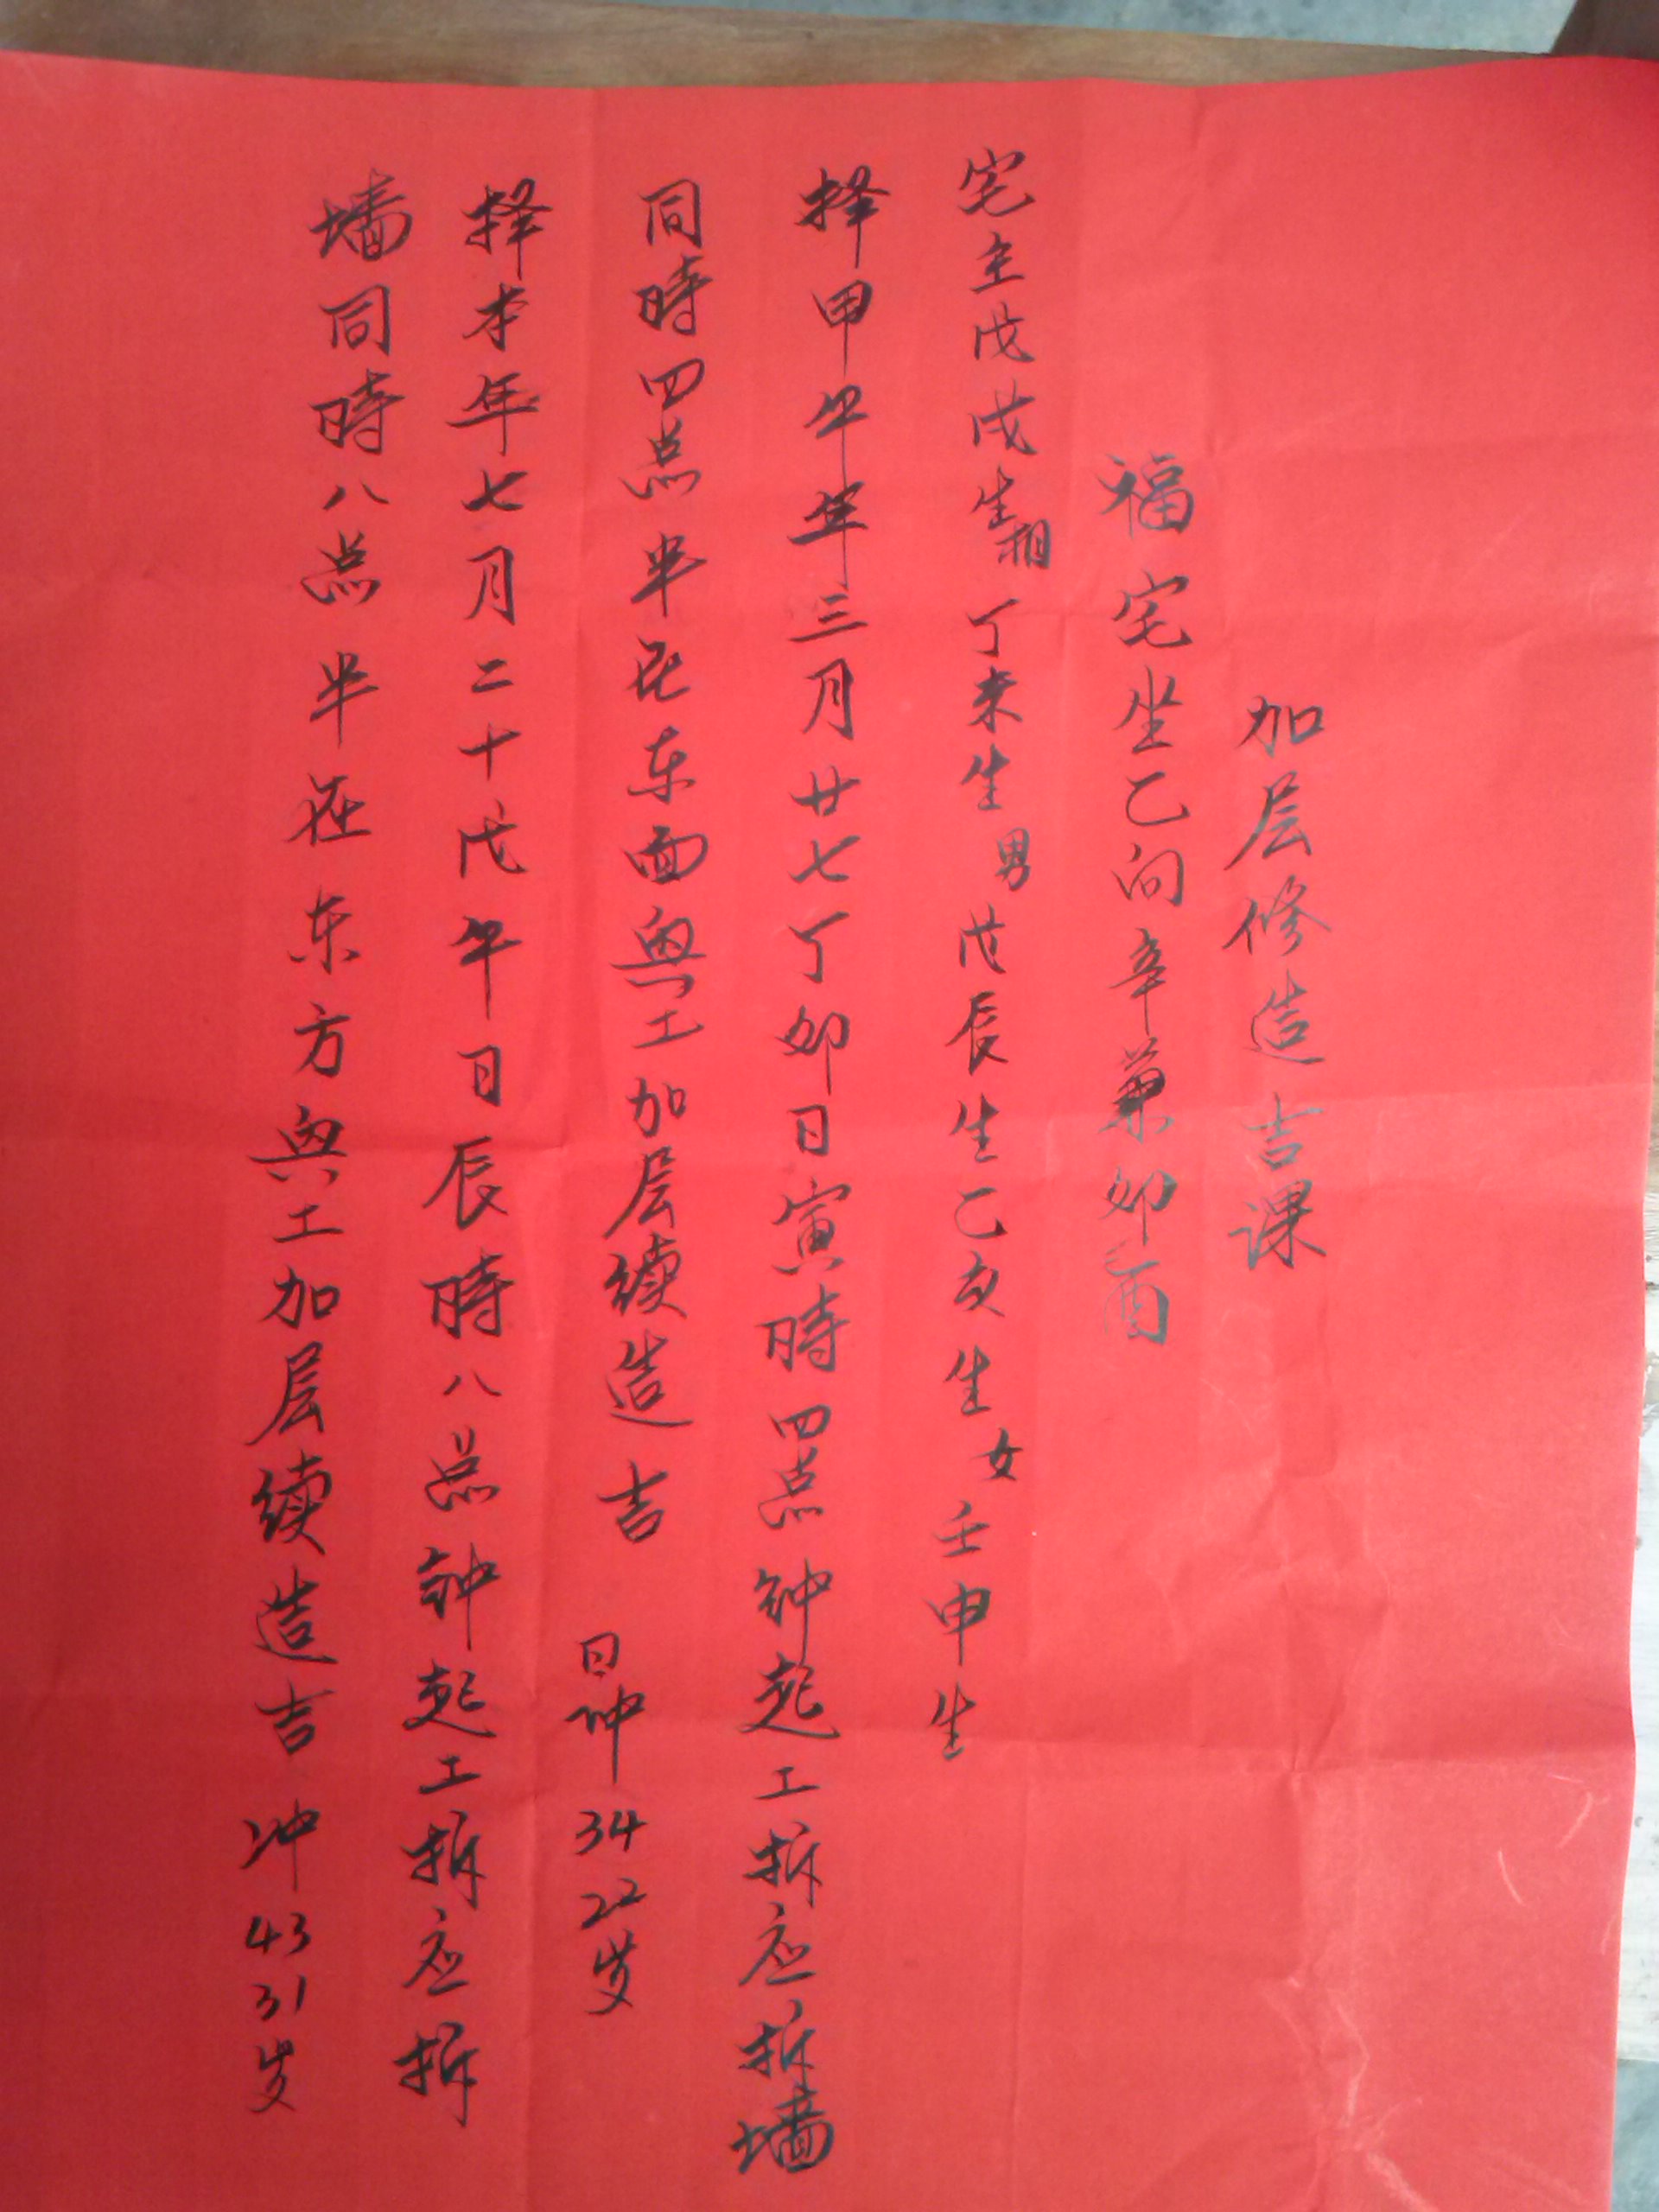 加层修造吉课
福宅坐乙向辛兼卯酉
宅主戊戌生相丁未生男戊辰生乙亥生女壬申生
择甲午年三月廿七丁卯日寅時四点钟起工拆应拆墙
同時四点半在东面興工加层續造吉 日冲34 22岁
择本年七月二十戊午日辰時八点钟起工拆应拆
墙同時八点半在东方興工加层續造吉 冲43 31岁